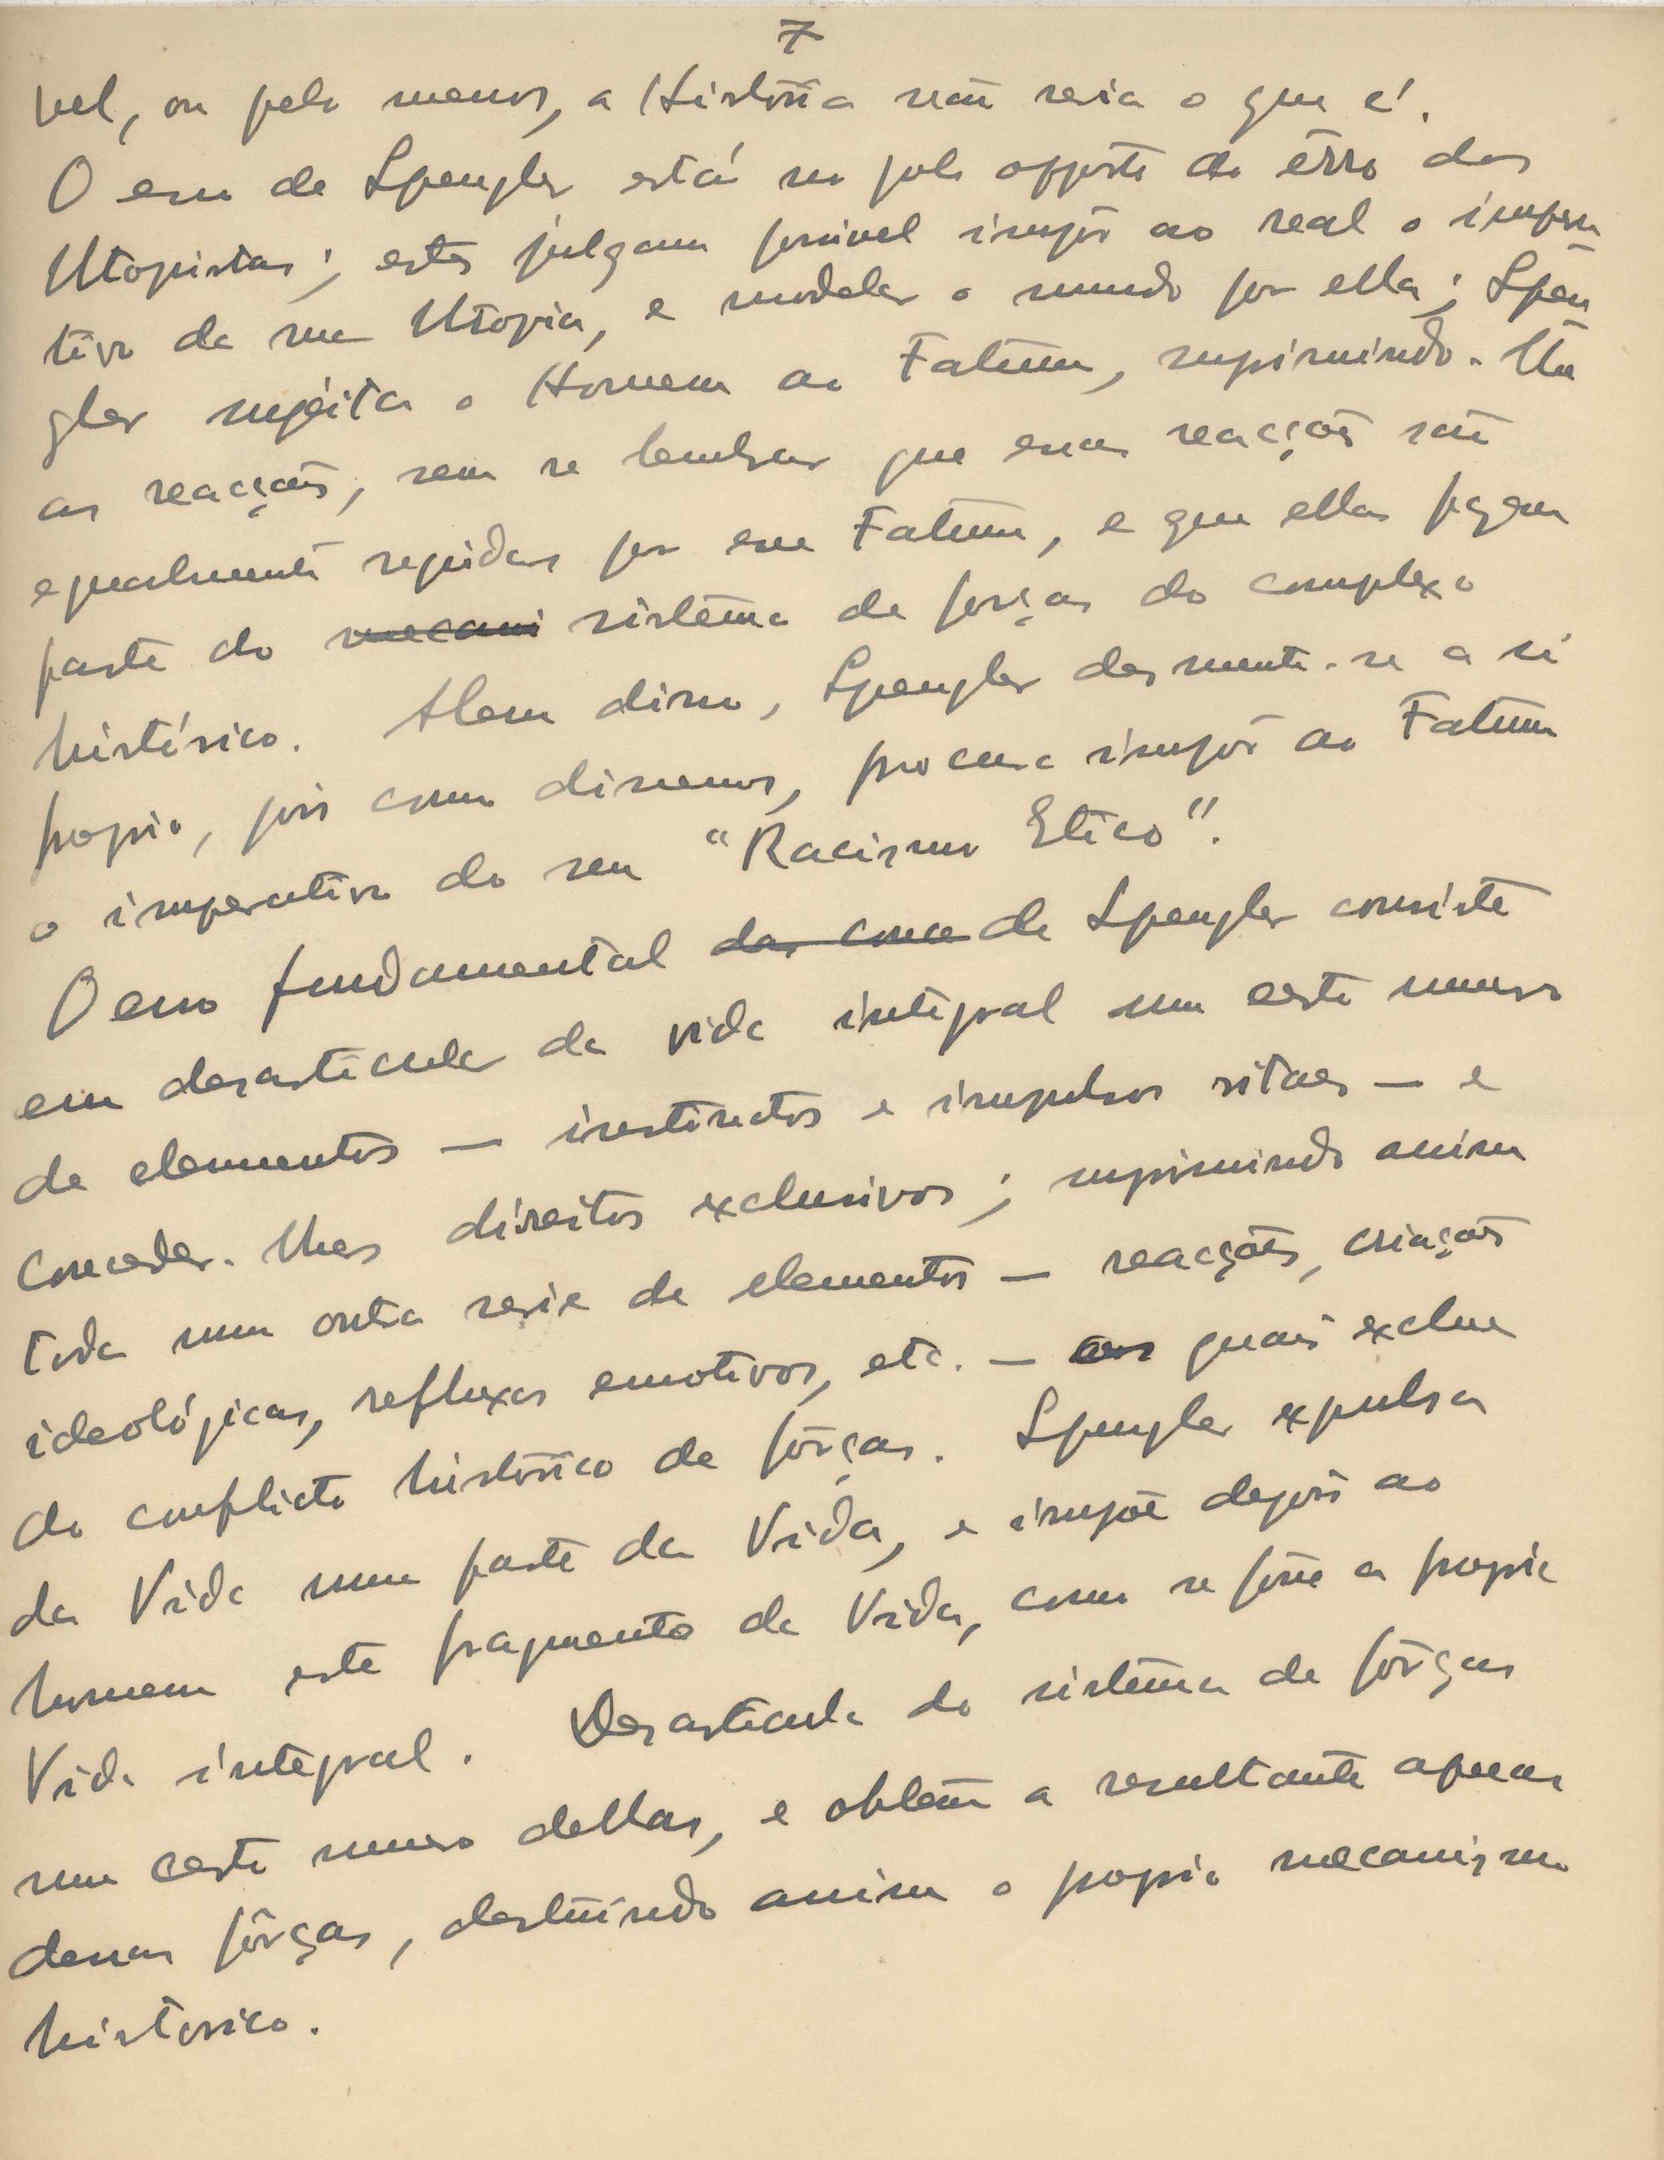 7
vel, ou pelo menos, a História não seria o que é.
O erro de Spengler está no polo opposto do êrro dos
Utopistas; estes julgam possivel impôr ao real o impera
tivo da sua Utopia, e modelar o mundo por ella; Spen
gler sujeita o Homem ao Fatum, suprimindo-lhe
as reacções, sem se lembrar que essas reacções são
egualmente regidas por esse Fatum, e que ellas fazem
parte do mecani sistema de forças do complexo
histórico. Alem disso, Spengler desmente-se a si
proprio, pois como dissemos, procura impôr ao Fatum
o imperativo do seu "Racismo Etico".
O erro fundamental das conce de Spengler consiste
em desarticular da vida integral um certo numero
de elementos — instinctos e impulsos vitaes — e
conceder-lhes direitos exclusivos; suprimindo assim
toda uma outra serie de elementos — reacções, criações
ideológicas, refluxos emotivos, etc. — as quais exclue
do conflicto histórico de fôrças. Spengler expulsa
da Vida uma parte da Vida, e impõe depois ao
homem este fragmento de Vida, como se fôsse a propria
Vida integral. Desarticula do sistema de fôrças
um certo numero dellas, e obtem a resultante apenas
dessas fôrças, destruindo assim o proprio mecanismo
historico.